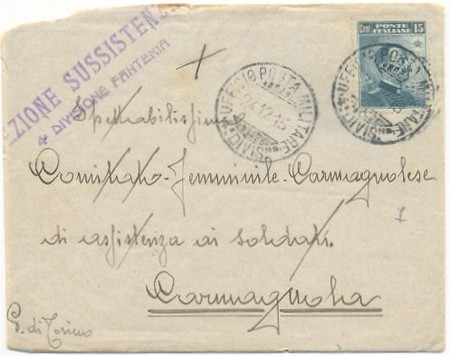 EZIONE SUSSISTEN
4ª DIVISIONE FANTERIA
Cent 15
POSTE ITALIANE
UFFICIO POSTA MILITARE
12.15
UFFICIO POSTA MILITARE
Spettabilissimo
Comitato Femminile Carmagnolese
di assistenza ai soldati.
Carmagnola
P. di Torino